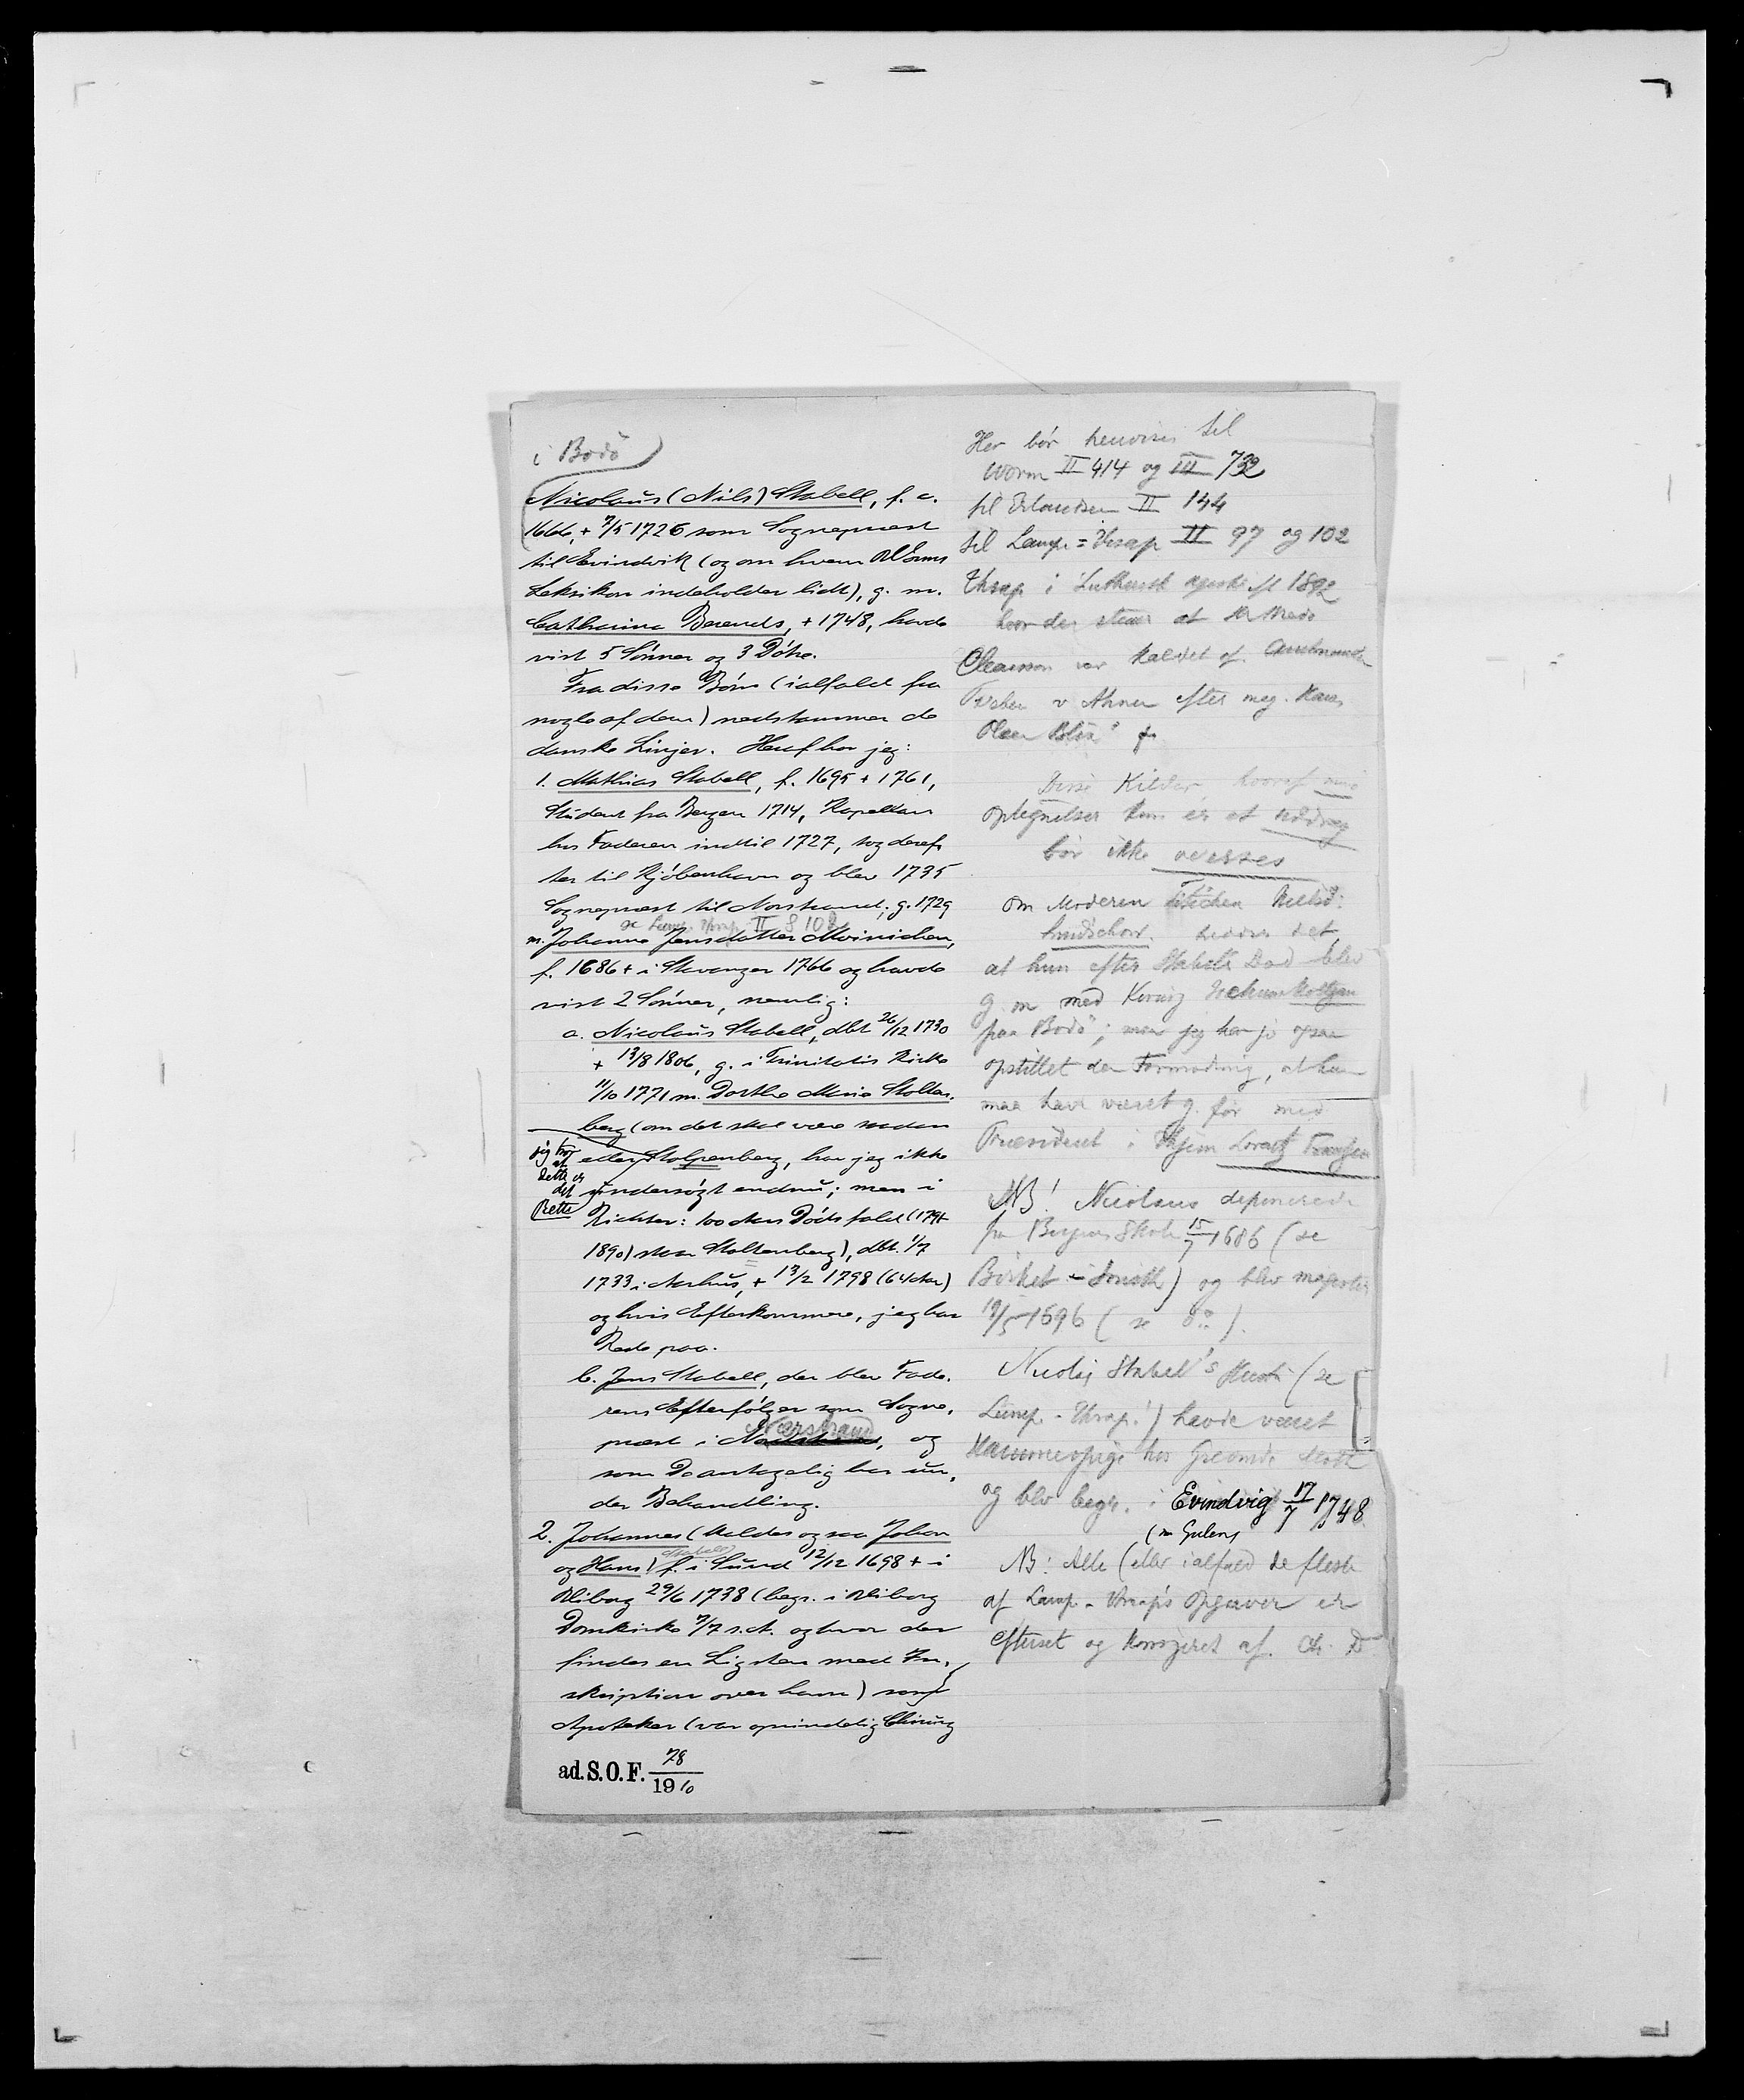 i Bodö
Nicolaus (Nils) Stabell, f. c.
1666, + 7/5 1726 som Sognepræst
til Evindvik (og om hvem Worms
Leksikon indeholder lidt), g. m.
Catharina Berends, + 1748, havde
vist 5 Sönner og 3 Dötre.
Fra disse Börn (ialfald fra
nogle af dem) nedstammer de
danske Linjer. Heraf har jeg:
1. Mathias Stabell, f. 1695 + 1761,
Student fra Bergen 1714, Kapellan
hos Faderen indtil 1727, tog deref-
ter til Kjöbenhavn og blev 1735
Sognepræst til Norstrand; g. 1729
se Lamp. Thrap II S 102
m. Johanna Jensdatter Moinichen,
f. 1686 + i Stavanger 1766 og havde
vist 2 Sönner, nemlig:
a. Nicolaus Stabell, dbt 26/12 1730
+ 13/8 1806, g. i Trinitatis Kirke
11/10 1771 m. Dorthe Marie Stolten-
berg (om det skal være saadan
eller Stolpenberg, har jeg ikke
undersögt endnu; men i
jeg tror at dette er det Rette
Richter: 100 Aars Dödsfald (1791-
1890) staar Stoltenberg), dbt. 1/7
1733 i Aarhus, + 13/2 1798 (64 Aar)
og hvis Efterkommere, jeg har
Rede paa.
b. Jens Stabell, der blev Fade-
rens Efterfölger som Sogne-
præst i Nærstrand, og
som De antagelig har un-
der Behandling.
2. Johannes (kaldes ogsaa Johan
og Hans) Stabell f. i Sund 12/12 1698 + i
Viborg 29/6 1738 (begr. i Viborg
Domkirke 7/7 s.A. og hvor der
findes en Ligsten med In-
skription over ham) som
Apoteker (var oprindelig Chirurg
ad. S. O. F. 78/1910
Her bör henvises til
Worm II 414 og III 732
til Erlandsen II 144
til Lamp = Thrap II 97 og 102
Thrap i Luthersk 1892
hvor der staar at Hr Mads
Oleamson var kaldet af Amtmanden
Preben v Ahnen efter mag. Hans
Olsen
Disse Kilder, hvoraf mine
optegnelser kun er et uddrag
bör ikke oversees
Om Moderen
hedder det,
at hun efter Stabells Död blev
g. m. med
paa Bodö; men jeg har jo ogsaa
opstillet den Formodning, at hun
maa have været g. för med
Præsident i Thjem Lorentz
NB! Nicolaus deponerede
fra Bergens Skole 15/7 1686 (se
Birket-Smith) og blev magister
19/5 1696 (se do).
Nicolaj Stabell's Hustru (se
Lamp.-Thrap!) havde været
Kammerpige hos
og blev begr. i Evindvig 17/7 1748.
(nu Gulen)
NB: Alle (eller ialfald de fleste
af Lamp.-Thrap's Opgaver er
efterset og korrigeret af. Ch. D